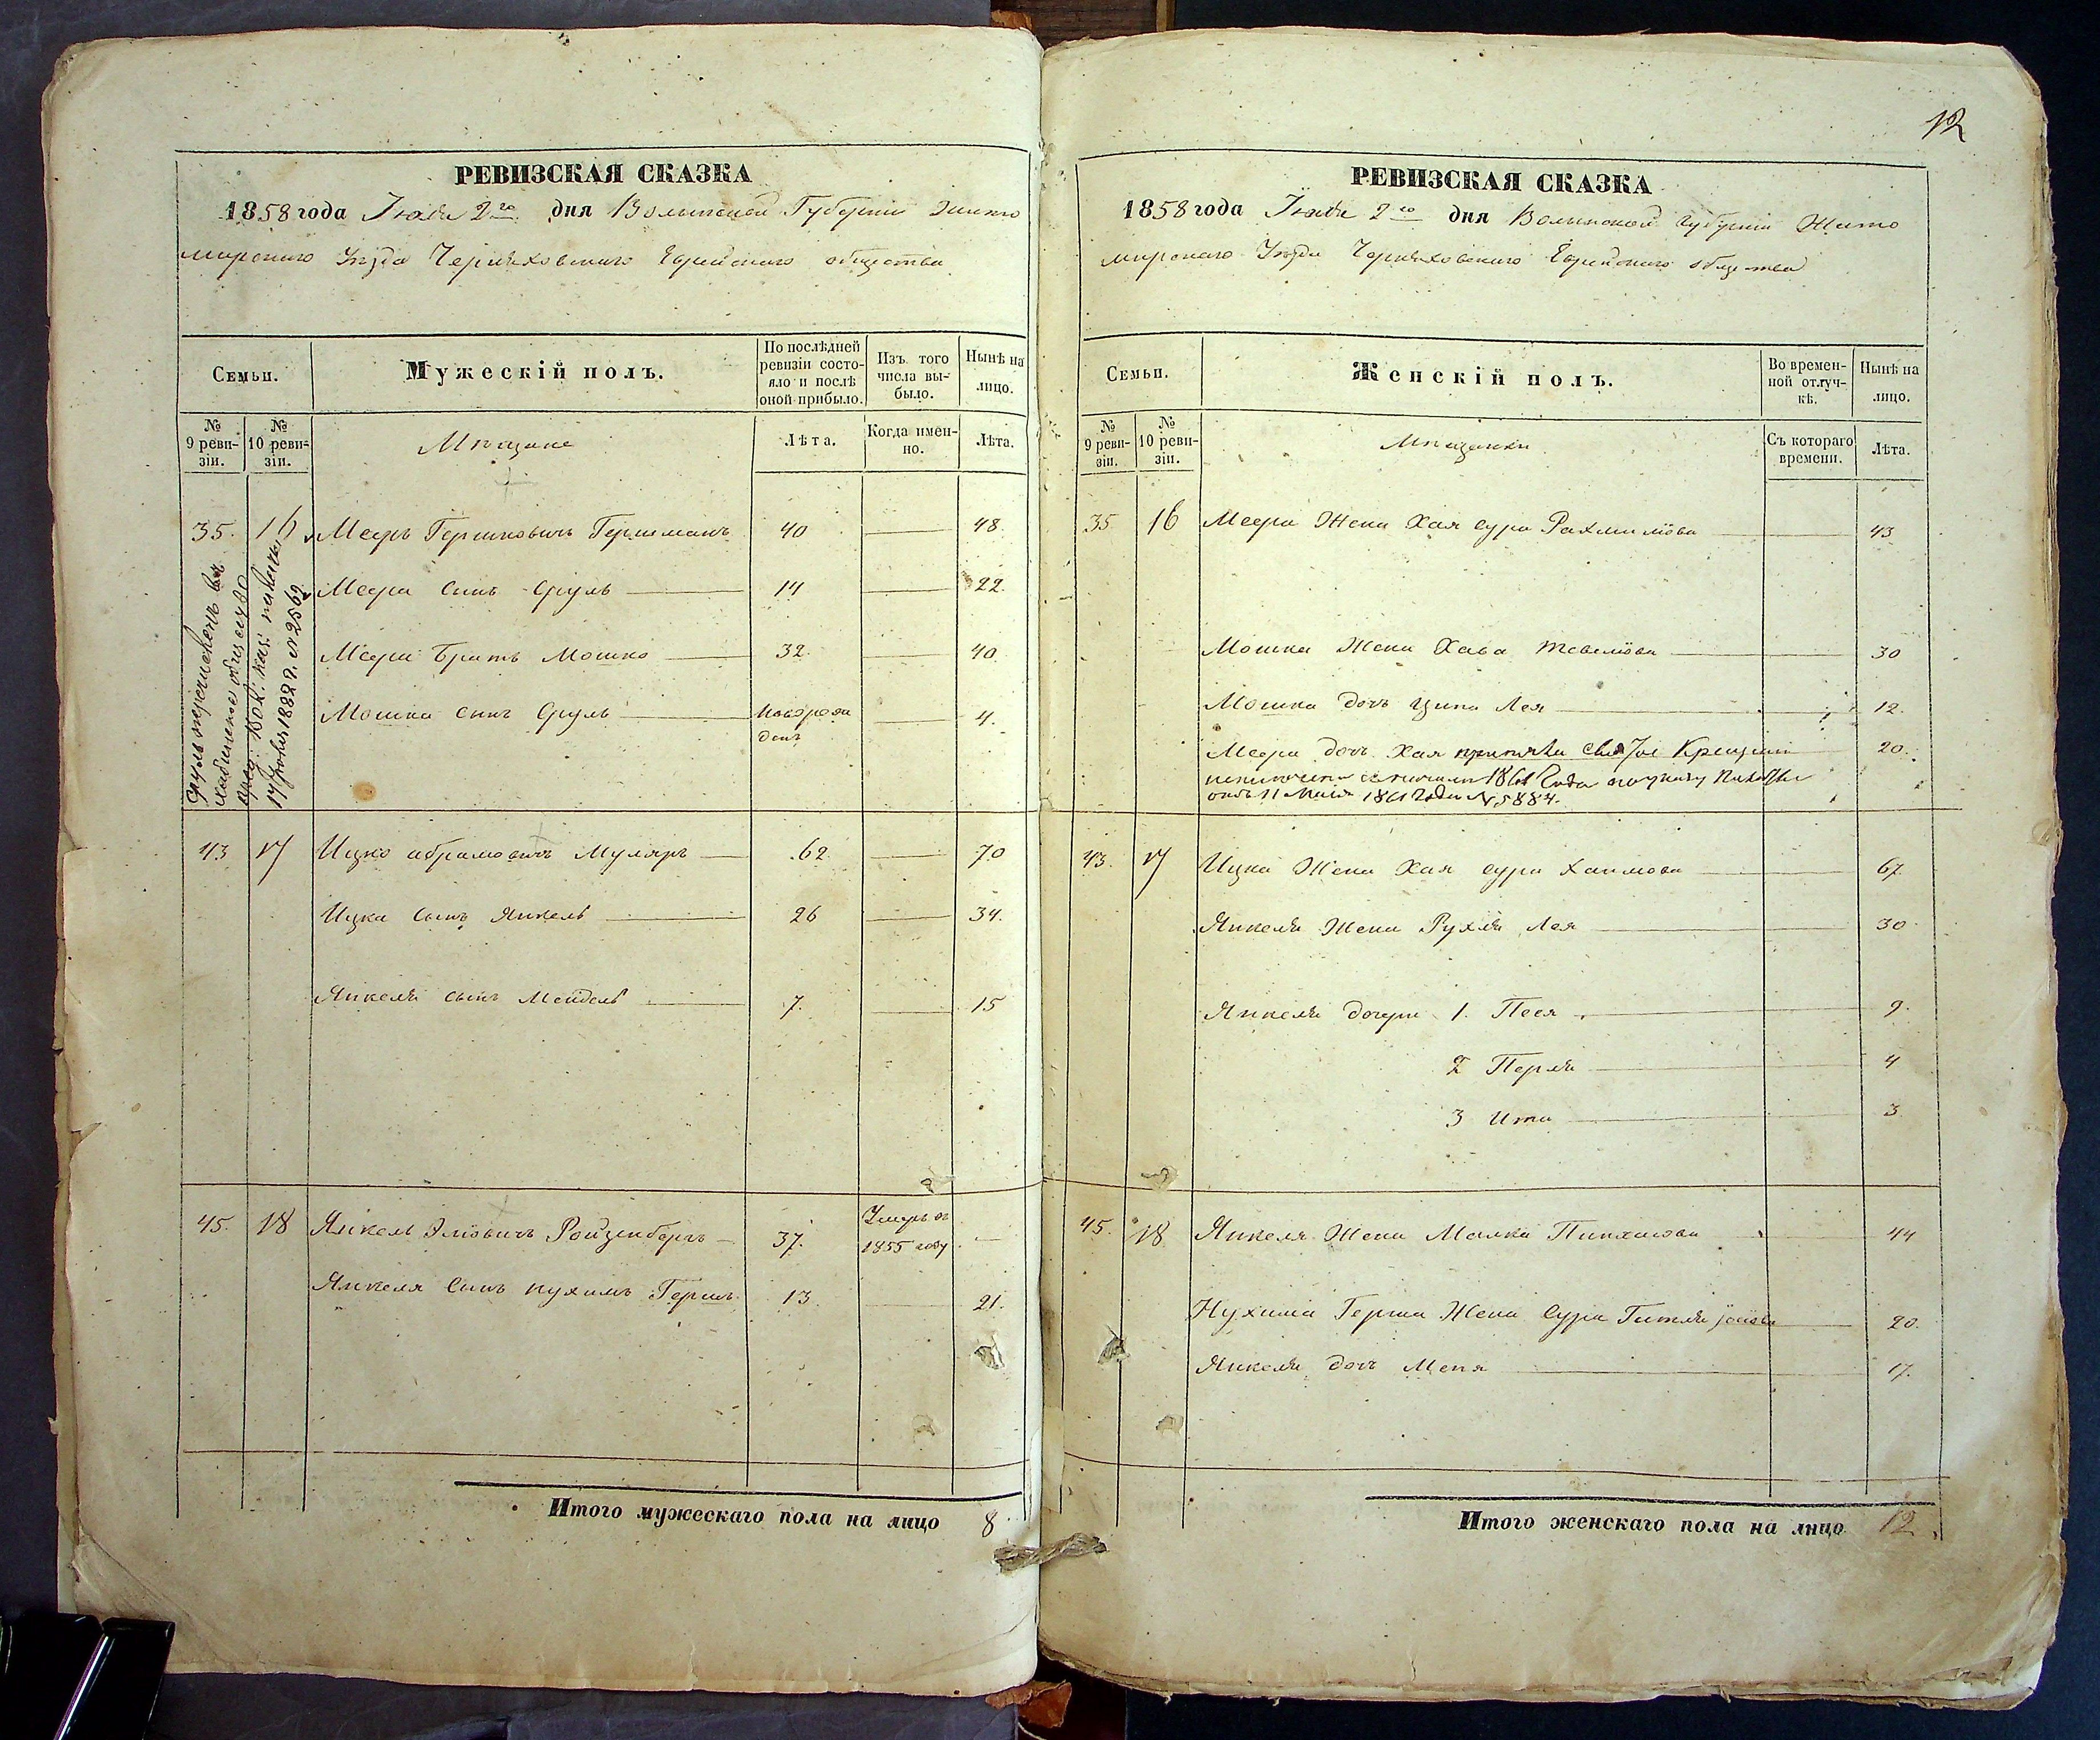 РЕВИЗСКАЯ СКАЗКА
1858 года Июля 2го дня Волынской Губерніи Жито
мирскаго Уѣзда Черняховскаго Еврейскаго общества
Семьи.
Мужескій полъ.
По послѣдней ревизіи состо-
яло и послѣ оной прибыло.
Изъ того числа вы-
было.
Нынѣ на лицо.
№ 9 реви-
зіи.
№ 10 реви-
зіи.
Мѣщане
Лѣта.
Когда имен-
но.
Лѣта.
35. 16 Мееръ Гершковичъ Гершманъ 40 — 48
Меера сынъ Сруль — 14 — 22.
Меера Братъ Мошко — 32. — 40.
Мошка сынъ Сруль — новорож
денъ — 4.
Сруль перечисленъ въ
Хабинское общество
17 1882 г. № 2562
43 17 Ицко Абрамовичъ Муляръ — 62. — 70
Ицка сынъ Янкель — 26 — 34.
Янкеля сынъ Мендель — 7. — 15
45. 18 Янкель Эліовичъ Ройзенбергъ — 37. Умеръ въ
1855 году —
Янкеля Сынъ Нухимъ Гершъ 13. — 21.
Итого мужескаго пола на лицо 8.
12
РЕВИЗСКАЯ СКАЗКА
1858 года Июля 2го дня Волынской Губерніи Жито
мирскаго Уѣзда Черняховскаго Еврейскаго общества
Семьи.
Женскій полъ.
Во времен-
ной отлуч-
кѣ.
Нынѣ на лицо.
№ 9 реви-
зіи.
№ 10 реви-
зіи.
Мѣщанки
Съ котораго времени.
Лѣта.
35 16 Меера Жена Хая Сура Рахмиліова — 43
Мошка Жена Хава Тевеліова — 30
Мошка дочь Ципа Лея — 12.
Меера дочь Хая приняла Святое Крещеніе 20.
1861 Года по указу Палаты
отъ 11 Мая 1861 года № 5884.
43. 17 Ицка Жена Хая Сура Хаимова — 67
Янкеля Жена Рухля Лея — 30
Янкеля дочери 1. Песя — 9.
2 Перля — 4
3 Ита — 3
45. 18 Янкеля Жена Малка Пинхасова 44
Нухима Герша Жена Сура Гитля — 20.
Янкеля дочь Меня — 17.
Итого женскаго пола на лицо 12.